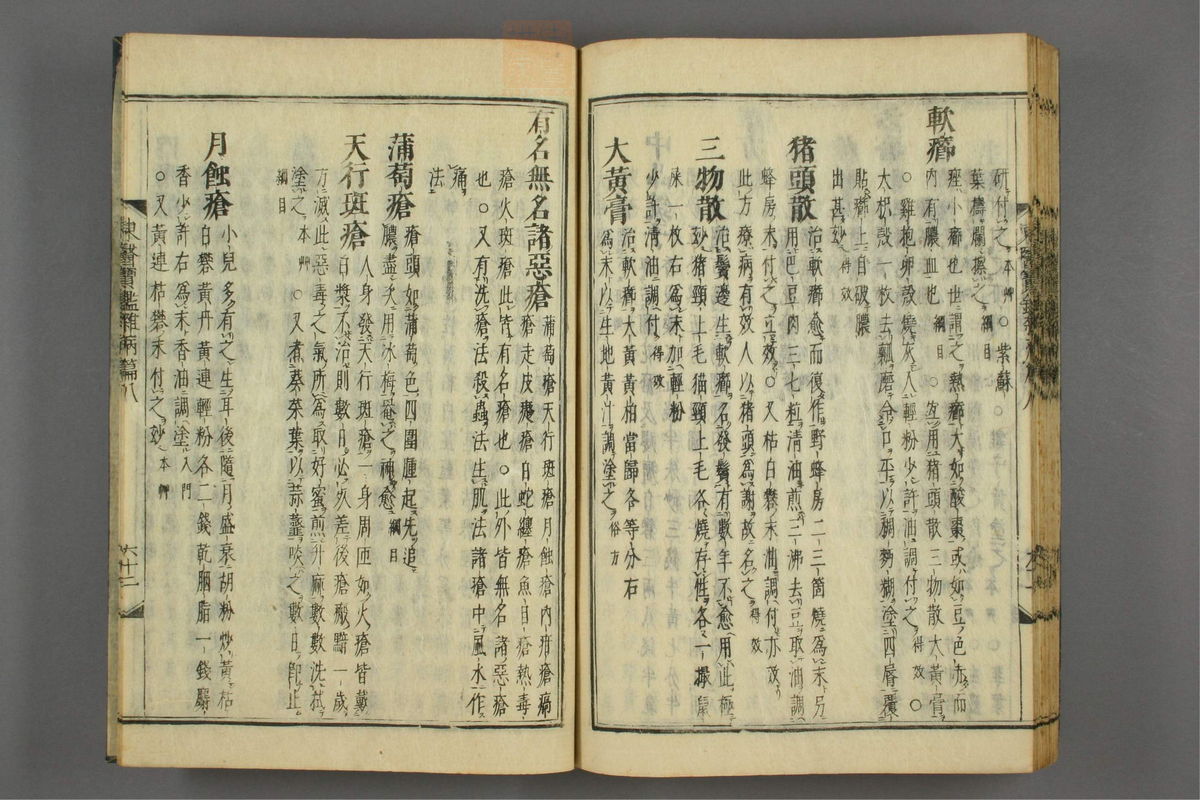 研付之本艸○紫蘇
葉擣爛摻之綱目
軟癤
痤小癤也世謂之熱癤大如酸棗或如豆色赤而
內有膿血也綱目○宜用猪頭散三物散大黃膏
○雞抱卵殼燒灰入輕粉少許油調付之得效○
大枳殼一枚去瓤磨令口平以稠麪糊塗四唇覆
貼癤上自破膿
出甚妙得效
猪頭散
治軟癤愈而復作野蜂房二三箇燒爲末另
用巴豆肉三七粒清油煎三沸去豆取油調
蜂房末付之立效○又枯白礬末油調付亦效
此方療病有效人以猪頭爲謝故名之得效
三物散
治鬢邊生軟癤名發鬢有數年不愈用此極
妙猪頸上毛猫頸上毛各燒存性各一撮鼠
屎一枚右爲末加輕粉
少許清油調付得效
大黃膏
治軟癤大黃黃柏當歸各等分右
爲末以生地黃汁調塗之俗方
有名無名諸惡瘡
蒲萄瘡天行斑瘡月蝕瘡內疳瘡瘑
瘡走皮瘡白蛇纏瘡魚目瘡熱毒
瘡火斑瘡此皆有名瘡也○此外皆無名諸惡瘡
也○又有洗瘡法殺蟲法生肌法諸瘡中風水作
痛
法
蒲萄瘡
瘡頭如蒲萄色四圍腫起先追
膿盡又用冰梅卷之神愈綱目
天行斑瘡
人身發天行斑瘡一身周匝如火瘡皆戴
白漿不治則數日必死差後瘡瘢黯一歲
方滅此惡毒之氣所爲取好蜜煎升麻數數洗拭
塗之本艸○又煮葵菜葉以蒜虀啖之數日卽止
綱目
月蝕瘡
小兒多有之生耳後隨月盛衰胡粉炒黃枯
白礬黃丹黃連輕粉各二錢乾胭脂一錢麝
香少許右爲末香油調塗入門
○又黃連枯礬末付之妙本艸
東醫寶鑑雜病篇八
六十二